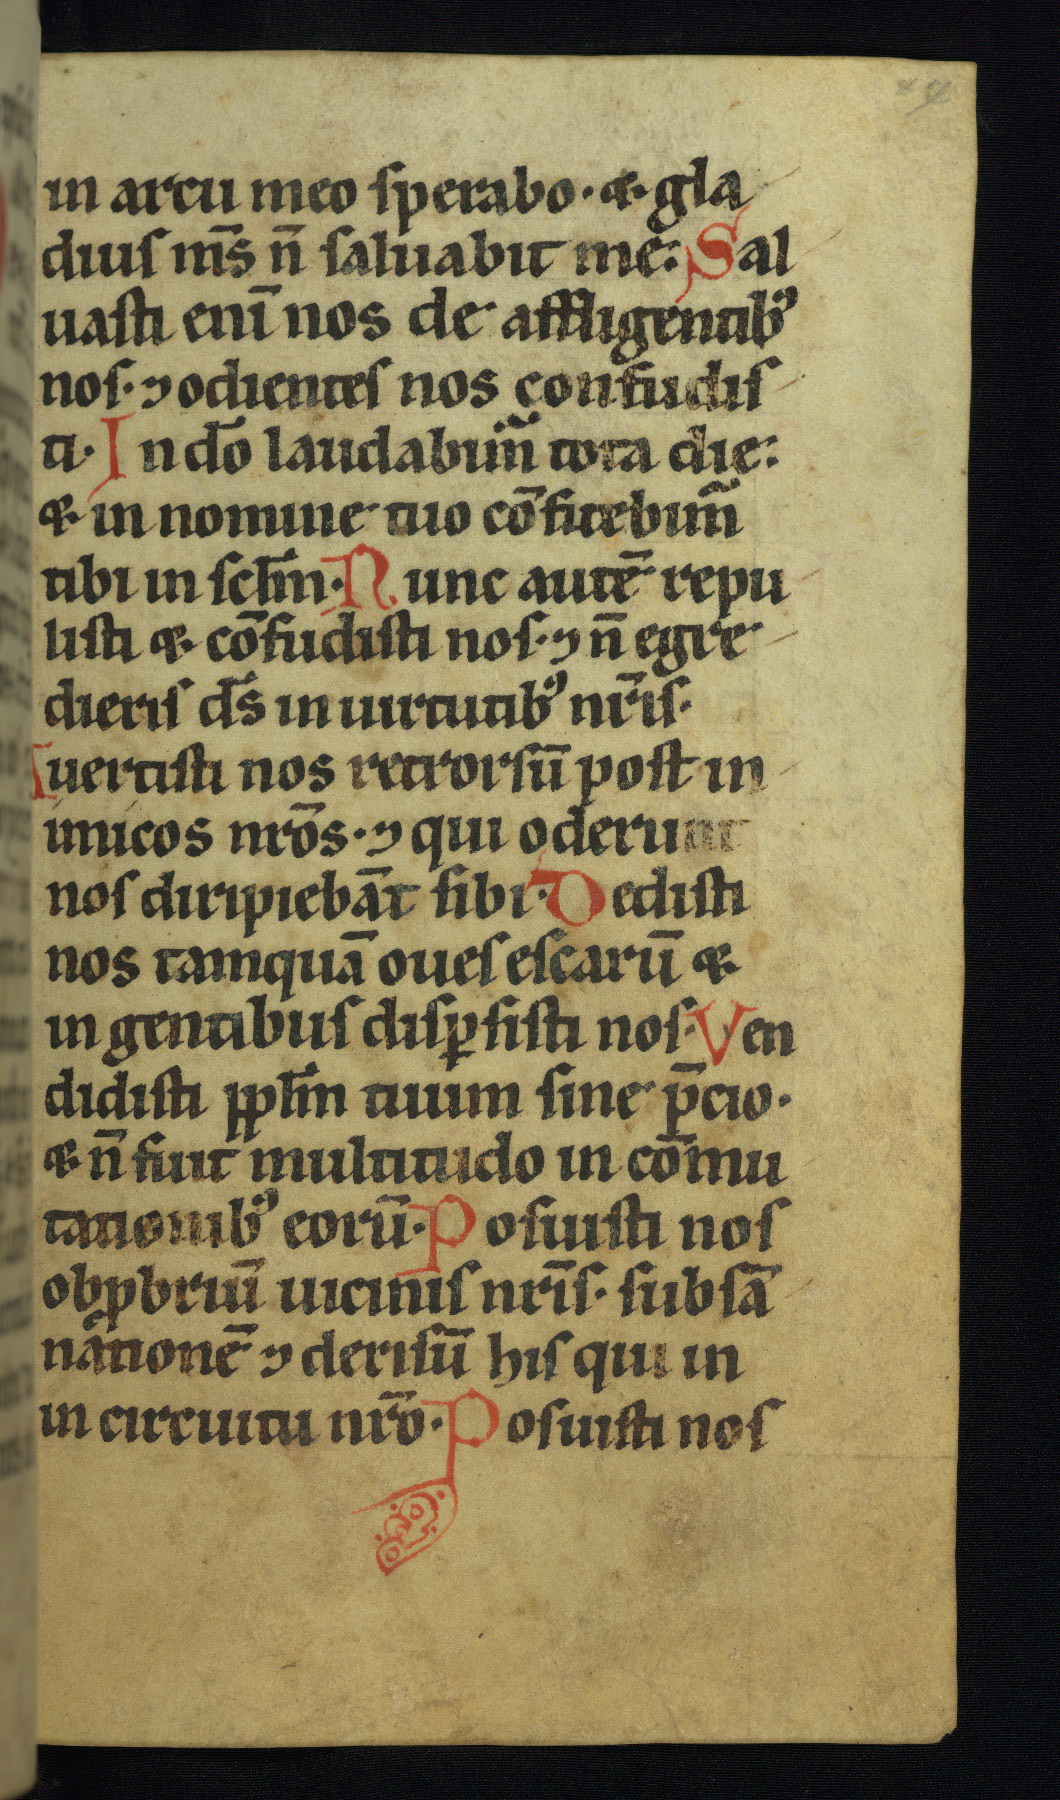 in arcu meo sperabo · & · gla
dius ms̄ n̄ saluabit me: Sal
uasti eni̅ nos de affligentibꝰ
nos · ⁊ odientes nos confudis
ti · In do̅ laudabim̃ tota die:
& in nomine tuo co̅fitebim̃
tibi in sclm̅ · Nunc aute̅ repu
listi & co̅fudisti nos · ⁊ n̄ egre
dieris ds̅ in uirtutibꝰ nr̅is ·
Auertisti nos retrorsu̅ post in
imicos nro̅s · ⁊ qui oderunt
nos diripieba̅t sibi · Dedisti
nos tamqua̅ oues escaru̅ &
in gentibus disꝑsisti nos · Ven
didisti pplm̅ tuum sine p̄cio ·
& n̄ fuit multitudo in co̅mu
tationibꝰ eoru̅ · Posuisti nos
obꝓbriu̅ uicinis nr̅is · subsa̅
natione̅ ⁊ derisu̅ his qui in
in circuitu nr̅o · Posuisti nos